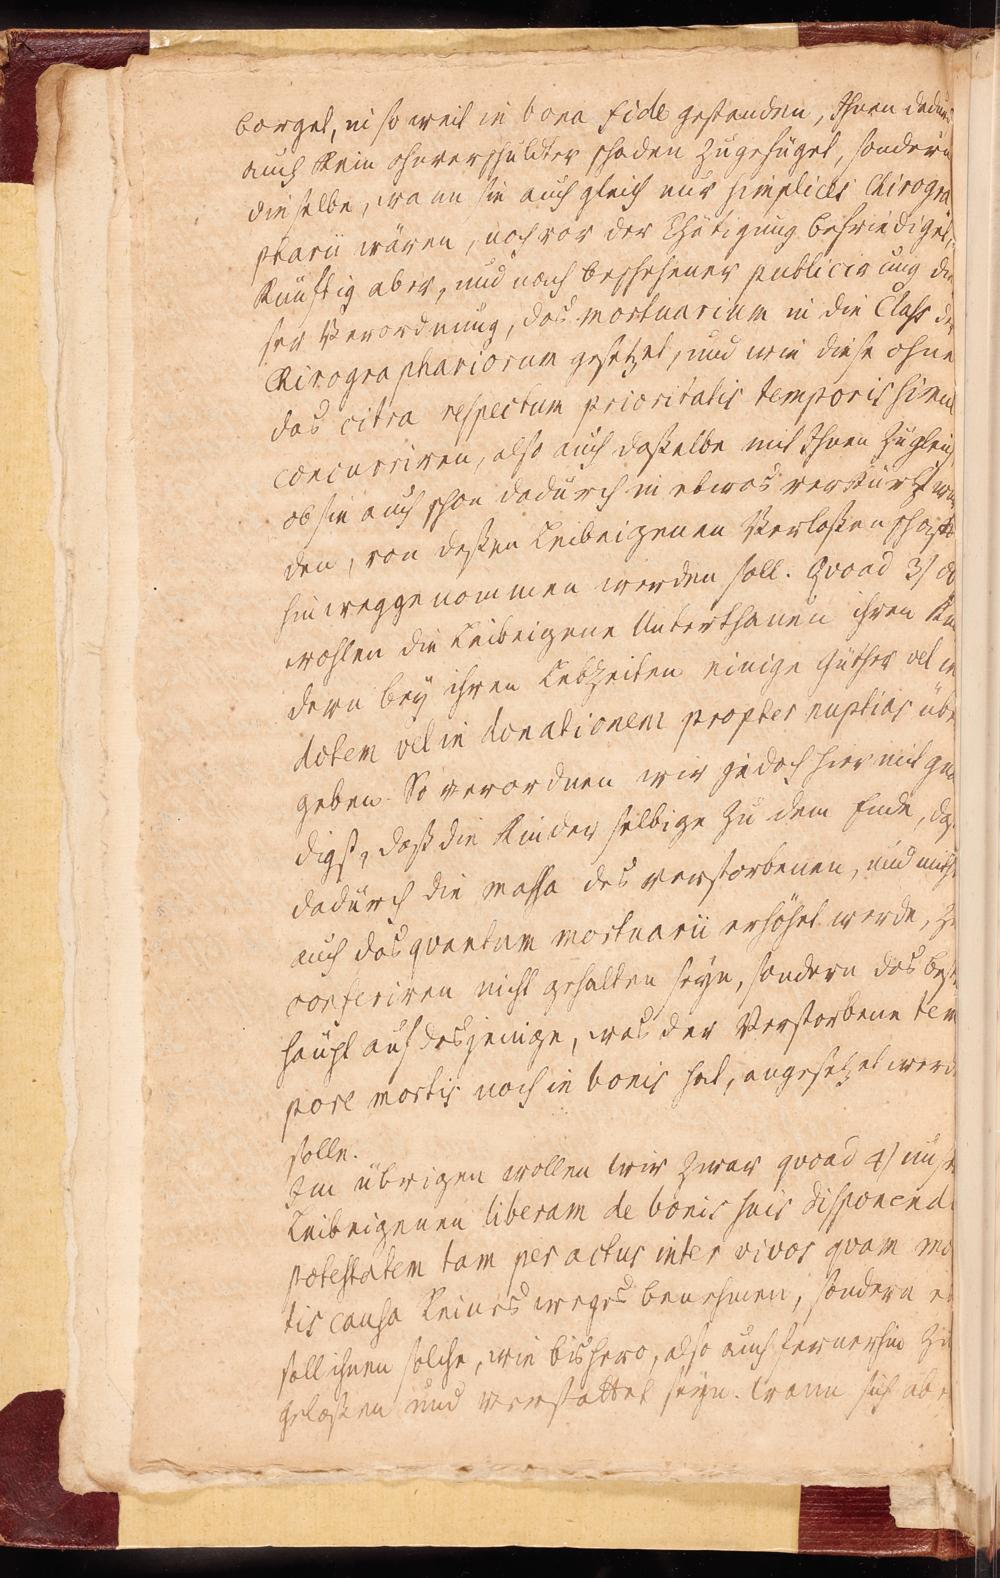 borget, in so weit in bona fide gestanden, Ihnen dadur
auch kein ohnverschuldter schaden zugefüget, sondern
dieselbe, wann sie auch gleich nur simplices Chirogra
pharii wären, noch vor der Thätigung befriediget,
Künftig aber, und nach beschehener publicirung die
ser Verordnung, das mortuarium in die Class der
Chirographariorum gesetzet, und wie diese ohne
das citra respectum prioritatis temporis hierin
concurriren, also auch dasselbe mit Ihnen zugleich
ob sie auch schon dadurch in etwas verkürtzt wür
den, von dessen Leibeigenen Verlassenschafft
hinweggenommen werden soll. Quoad 3) ob
wohlen die Leibeigene Unterthanen ihren Kin
dern bey ihren Lebzeiten einige Güther vel in
dotem vel in donationem propter nuptias über
geben. So verordnen wir jedoch hiermit gnä
digst, dass die Kinder selbige zu dem Ende, das
dadurch die massa des verstorbenen, und mith
auch das quantum mortuarii erhöhet werde, zu
conferiren nicht gehalten seyn, sondern das best
haupt auf dasjenige, was der Verstorbene tem
pore mortis noch in bonis hat, angesetzet werd
solle.
Im übrigen wollen wir zwar quoad 4) unser
Leibeigenen liberam de bonis suis disponend
potestatem tam per actus inter vivos quam mo
tis causa keines weges benehmen, sondern es
soll ihnen solche, wie bishero, also auch fernerhin zu
gelassen und verstattet seyn. Wann sich aber